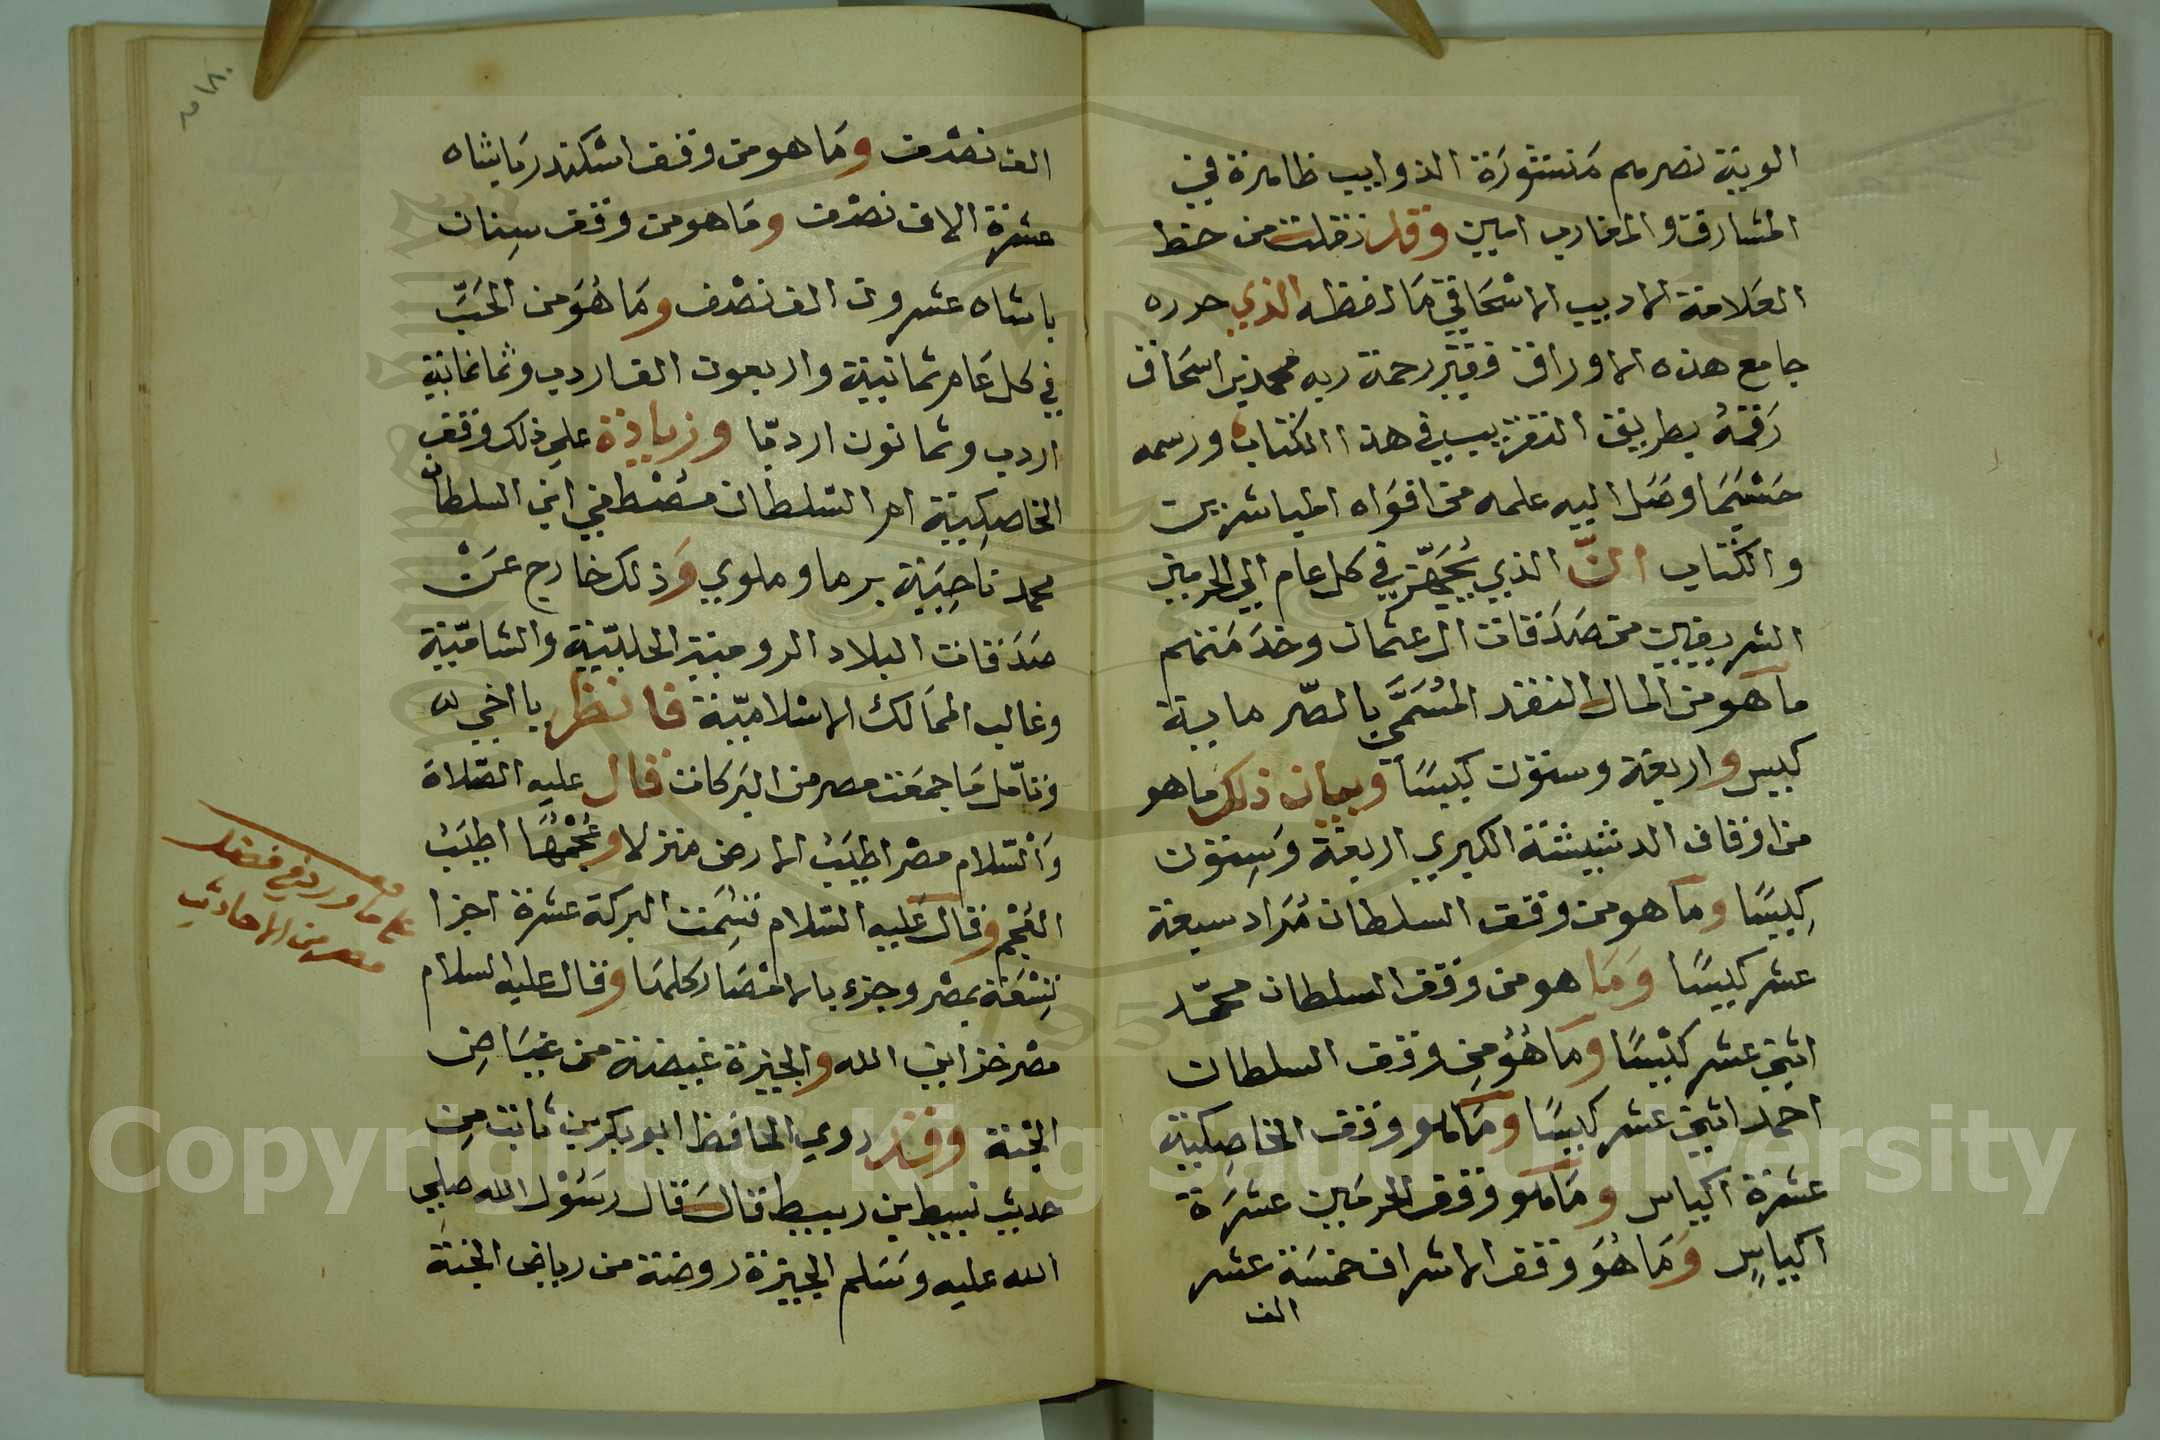 الوية نصرهم منشورة الذوايب ظاهرة في
المشارق والمغارب امين وقد نقلت من خط
العلامة الاديب الاسحاقي ما لفظه الذي حرره
جامع هذه الاوراق فقير رحمة ربه محمد بن اسحاق
رقمه بطريق التقريب في هذا الكتاب ورسمه
حسبما وصل اليه علمه من افواه المباشرين
والكتاب انّ الذي يُجَهَّز في كل عام الي الحرمين
الشريفين من صدقات ال عثمان وخدمتهم
ما هو من المال النقد المُسَمَّي بالصّر ماية
كيس واربعة وستون كيسًا وبيان ذلك ما هو
من اوقاف الدشيشة الكبري اربعة وستون
كيسًا وما هو من وقف السلطان مراد سبعة
عشر كيسًا وَمَا هو من وقف السلطان محمّد
اثني عشر كيسًا وما هُو من وقف السلطان
احمد اثني عشر كيسًا وما هو وقف الخاصكية
عشرة اكياس وما هو وقف الحرمين عشرة
اكياس وَمَا هُوَ وقف الاشراف خمسة عشر
الف
الف نصف وما هو من وقف اسكندر باشاه
عشرة الاف نصف وما هو من وقف سِنان
باشاه عشرون الف نصف وما هُوَ من الحَبّ
في كل عام ثمانية واربعون الف اردب وثمانماية
اردب وثمانون اردبّا وزيادة علي ذلك وقف
الخاصكية ام السلطان مصطفي ابن السلطان
محمد ناحية برما وملوي وَذلك خارج عَنْ
صدقات البلاد الرومية الحلبيّة والشاميّة
وغالب الممالك الاسلاميّة فانظر يا اخي له
وتأمّل ما جمعت مصر من البركات قال عليه الصّلاة
وَالسّلام مصر اطيَبُ الارض منزلا وعُجْمُهَا اطيَبُ
العُجْم وقال عليه السّلام قسمت البركة عشرة اجزا
تِسْعَة بمصر وجزء بالامصار كلها وقال عليه السلام
مصر خزاين الله والجيزة غيضة من غياضِ
الجنة وقد روي الحافظ ابو بكر بن ثابت مِن
حديث نبيط بن ربيط قال قال رَسُوْل الله صلي
الله عليه وسَلم الجيزة روضة من رياض الجنّة
علي ما ورد في فضل
مصر من الاحاديث
Copyright © King Saud University
1957